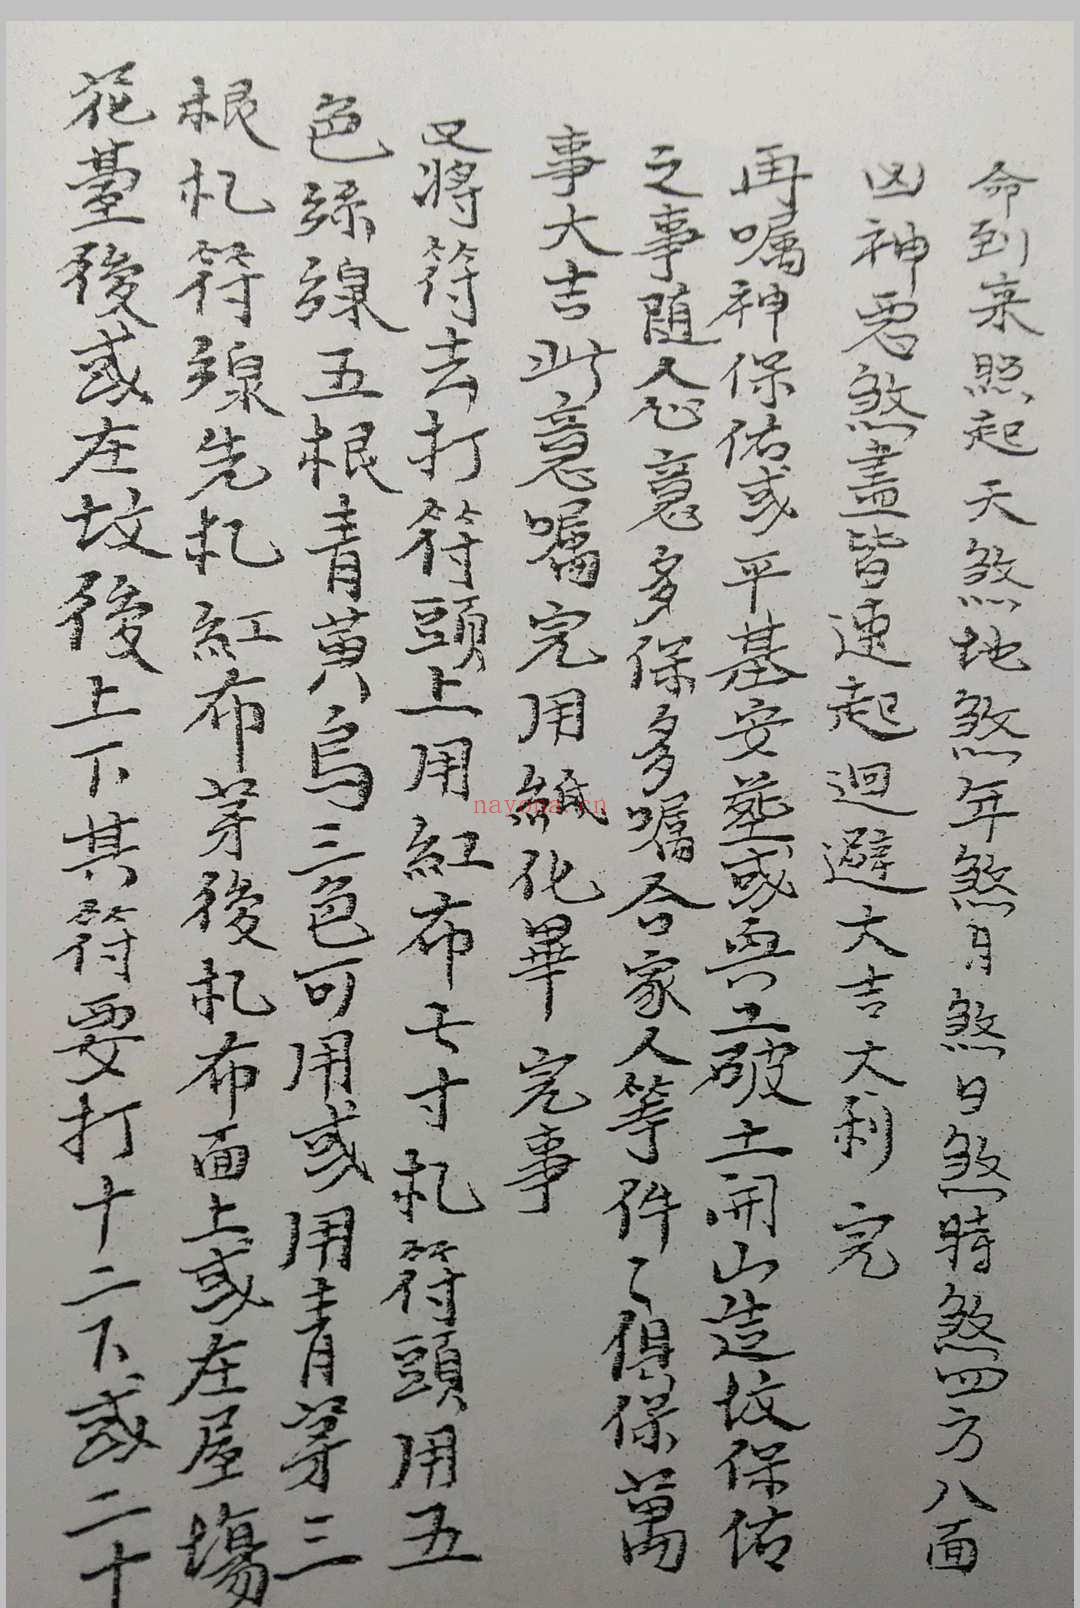 命到来照起天煞地煞年煞月煞日煞時煞四方八面
凶神惡煞盡皆速起迴避大吉大利完
再嘱神保佑或平基安葬或興工破土開山造坟保佑
之事随人心意多保多嘱合家人等件々俱保萬
事大吉此意嘱完用紙化畢完事
又將符去打符頭上用紅布七寸札符頭用五
色絲線五根青黄烏三色可用或用青茅三
根札符線先札紅布茅後札布面上或在屋場
花臺後或在坟後上下其符要打十二下或二十
nayona.cn